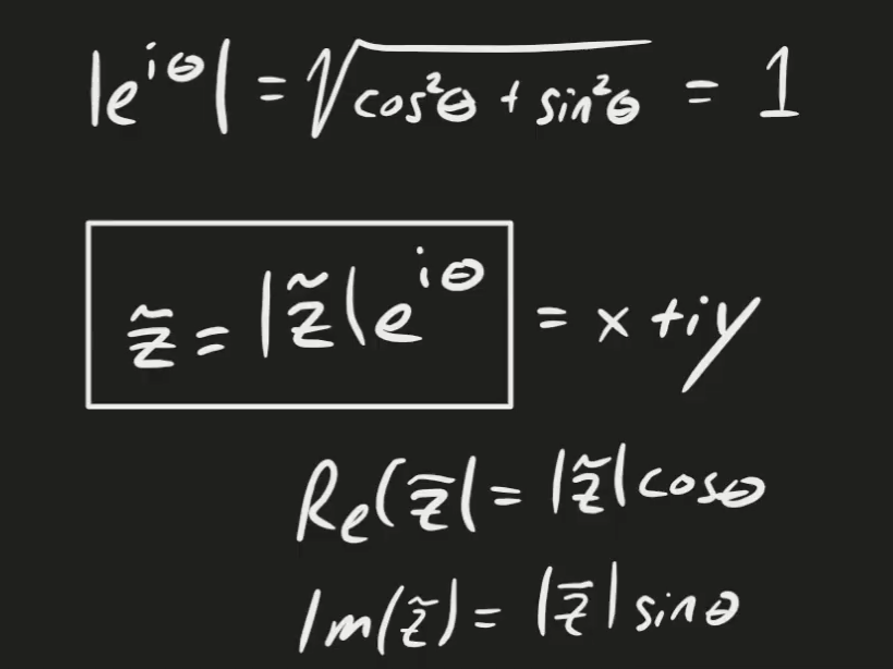 |e^{iθ}| = √(cos²θ + sin²θ) = 1
z̃ = |z̃|e^{iθ} = x + iy
Re(z̃) = |z̃| cosθ
Im(z̃) = |z̃| sinθ